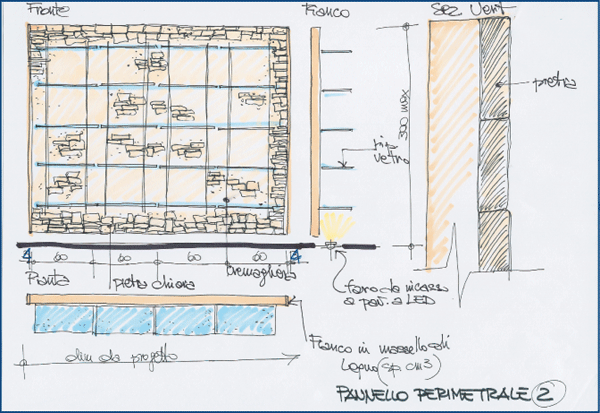 Fronte
Fianco
Sez Vert
pietra
300 max
rip
vetro
60 60 60 60
4 4
Pianta
pietra chiara
cremagliera
faro da incasso
a pav. a LED
Fianco in massello di
Legno (sp. cm3)
dim da progetto
PANNELLO PERIMETRALE 2